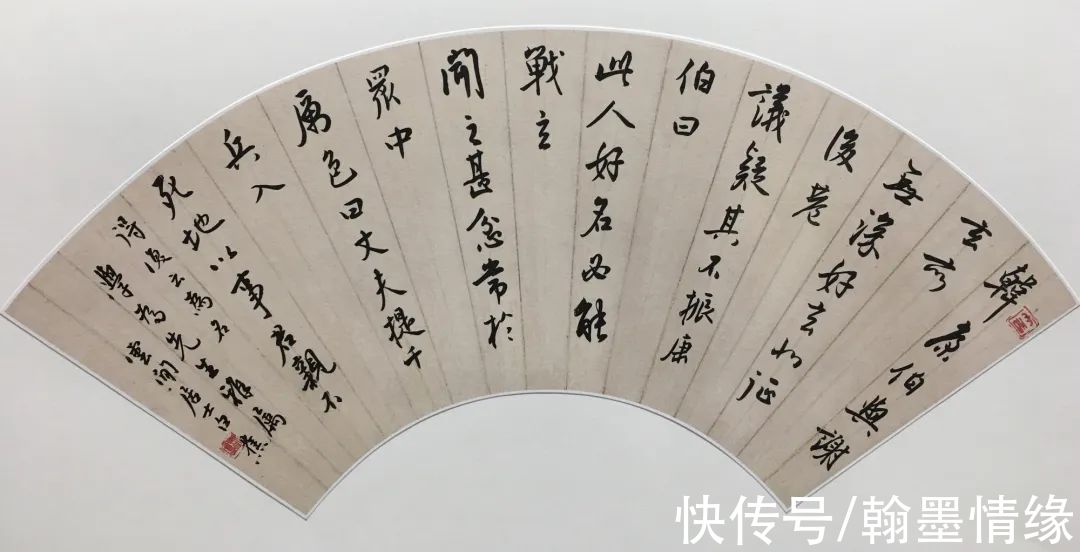 韓康伯與謝
玄亦
無深好玄北征
後巷
議疑其不振康
伯曰
此人好名必能
戰玄
聞之甚忿常於
眾中
厲色曰丈夫提千
兵入
死地以事君親不
得復云為名
學為先生雅屬
雲間居士白蕉
快传号/翰墨情缘